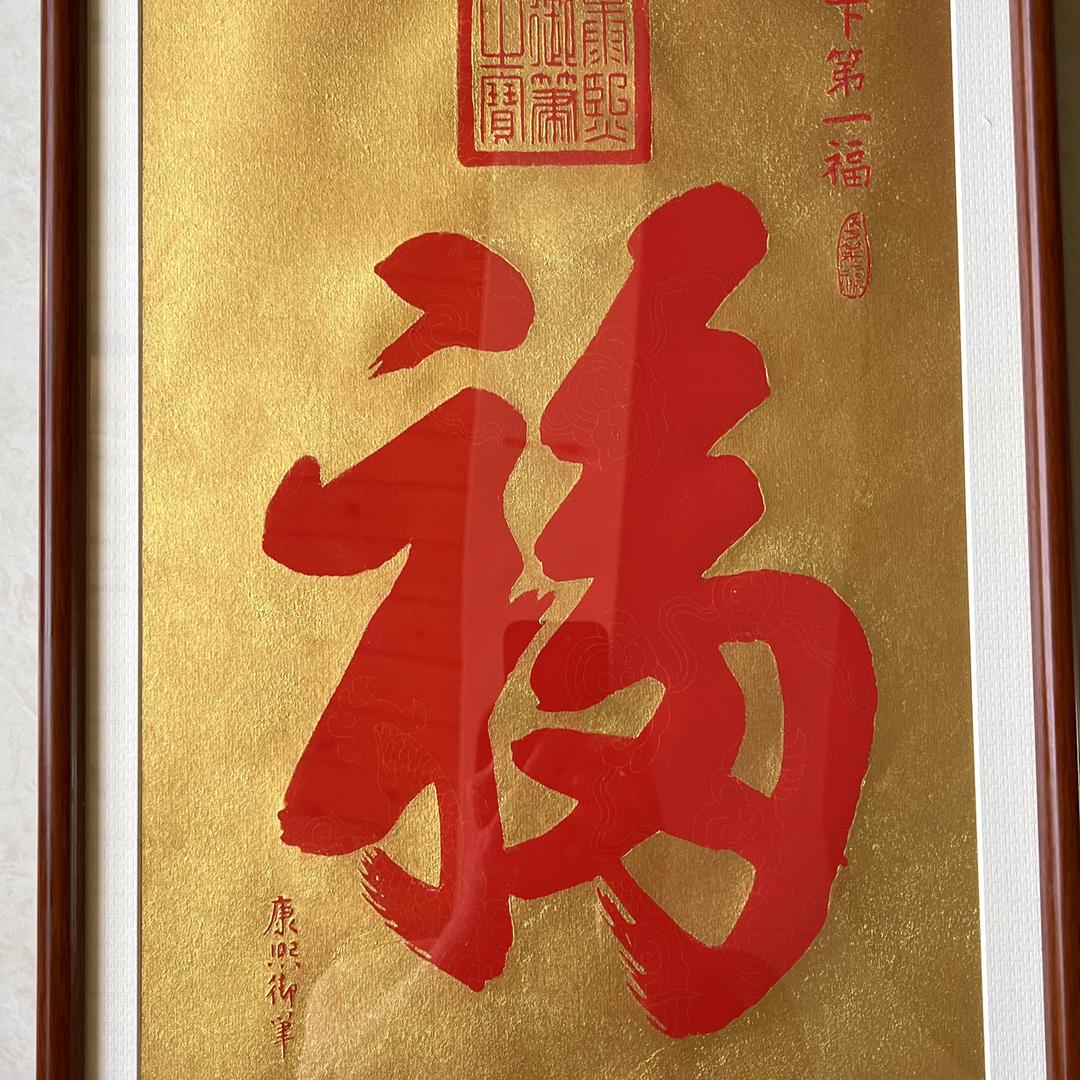 下第一福
康熙
御筆
之寶
福
康熙御筆